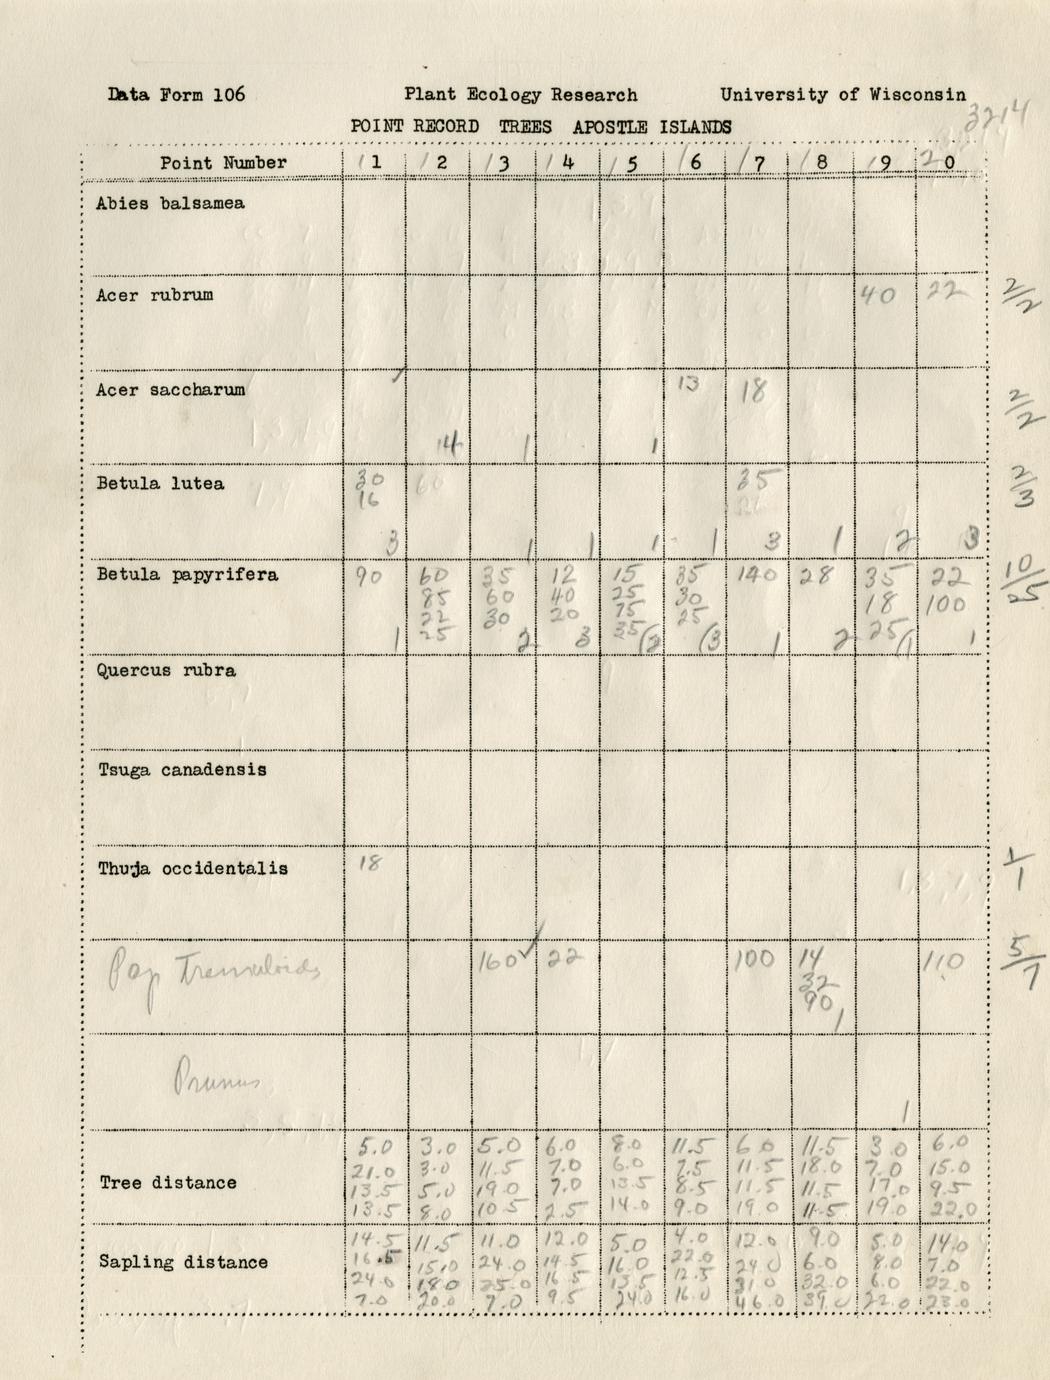 Data Form 106 Plant Ecology Research University of Wisconsin
3214
POINT RECORD TREES APOSTLE ISLANDS
Point Number 11 12 13 14 15 16 17 18 19 20
Abies balsamea
Acer rubrum 40 22 2/2
Acer saccharum 13 18 2/2
14 1 1
Betula lutea 30 60 35 2/3
16
3 1 1 1 1 3 1 2 3
Betula papyrifera 90 60 35 12 15 35 140 28 35 22 10/25
85 60 40 25 30 18 100
22 30 20 75 25 25
1 25 2 3 35 (2 (3 1 2 (1 1
Quercus rubra
Tsuga canadensis
Thuja occidentalis 18 1/1
Pop Tremuloids 160 22 100 14 110 5/7
32
90
1
Prunus
1
5.0 3.0 5.0 6.0 8.0 11.5 6.0 11.5 3.0 6.0
21.0 3.0 11.5 7.0 6.0 7.5 11.5 18.0 7.0 15.0
Tree distance 13.5 5.0 19.0 7.0 13.5 8.5 11.5 11.5 17.0 9.5
13.5 8.0 10.5 2.5 14.0 9.0 19.0 11.5 19.0 22.0
14.5 11.5 11.0 12.0 5.0 4.0 12.0 9.0 5.0 14.0
Sapling distance 16.5 15.0 24.0 14.5 16.0 22.0 24.0 6.0 8.0 7.0
24.0 18.0 25.0 16.5 13.5 12.5 31.0 32.0 6.0 22.0
7.0 20.0 7.0 9.5 24.0 16.0 46.0 39.0 22.0 23.0